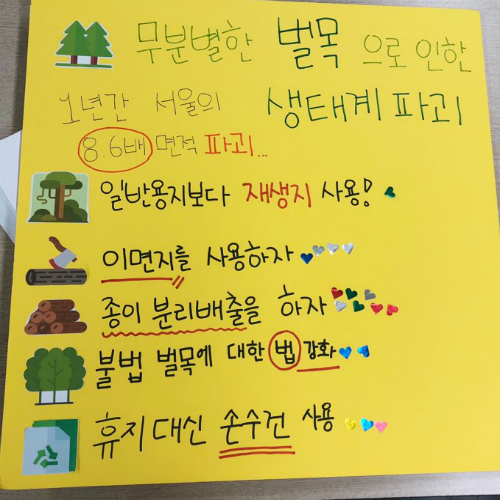 무분별한 벌목 으로 인한
생태계 파괴
1년간 서울의
8.6배 면적 파괴...
일반용지보다 재생지 사용!
이면지를 사용하자
종이 분리배출을 하자
불법 벌목에 대한 법 강화
휴지 대신 손수건 사용